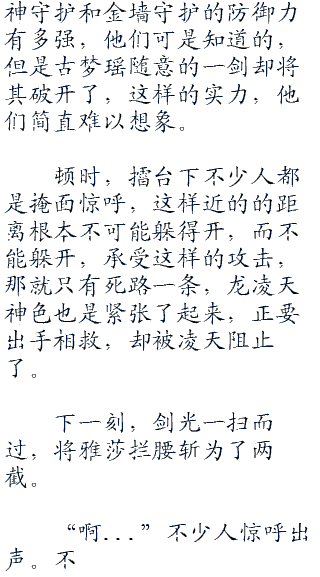 神守护和金墙守护的防御力
有多强，他们可是知道的，
但是古梦瑶随意的一剑却将
其破开了，这样的实力，他
们简直难以想象。
顿时，擂台下不少人都
是掩面惊呼，这样近的的距
离根本不可能躲得开，而不
能躲开，承受这样的攻击，
那就只有死路一条，龙凌天
神色也是紧张了起来，正要
出手相救，却被凌天阻止
了。
下一刻，剑光一扫而
过，将雅莎拦腰斩为了两
截。
“啊...”不少人惊呼出
声。不